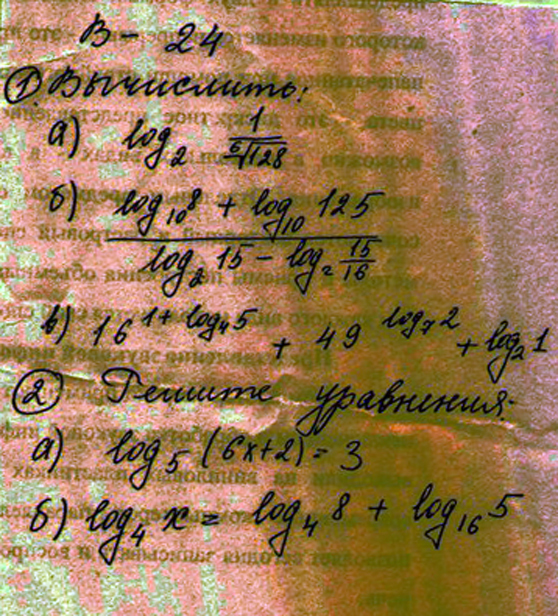 В - 24
① Вычислить:
а) log₂ 1/⁶√128
б) (log₁₀ 8 + log₁₀ 125)/(log₂ 15 - log₂ 15/16)
в) 16^(1 + log₄ 5) + 49^(log₇ 2) + log₂ 1
② Решите уравнения:
а) log₅ (6x+2) = 3
б) log₄ x = log₄ 8 + log₁₆ 5